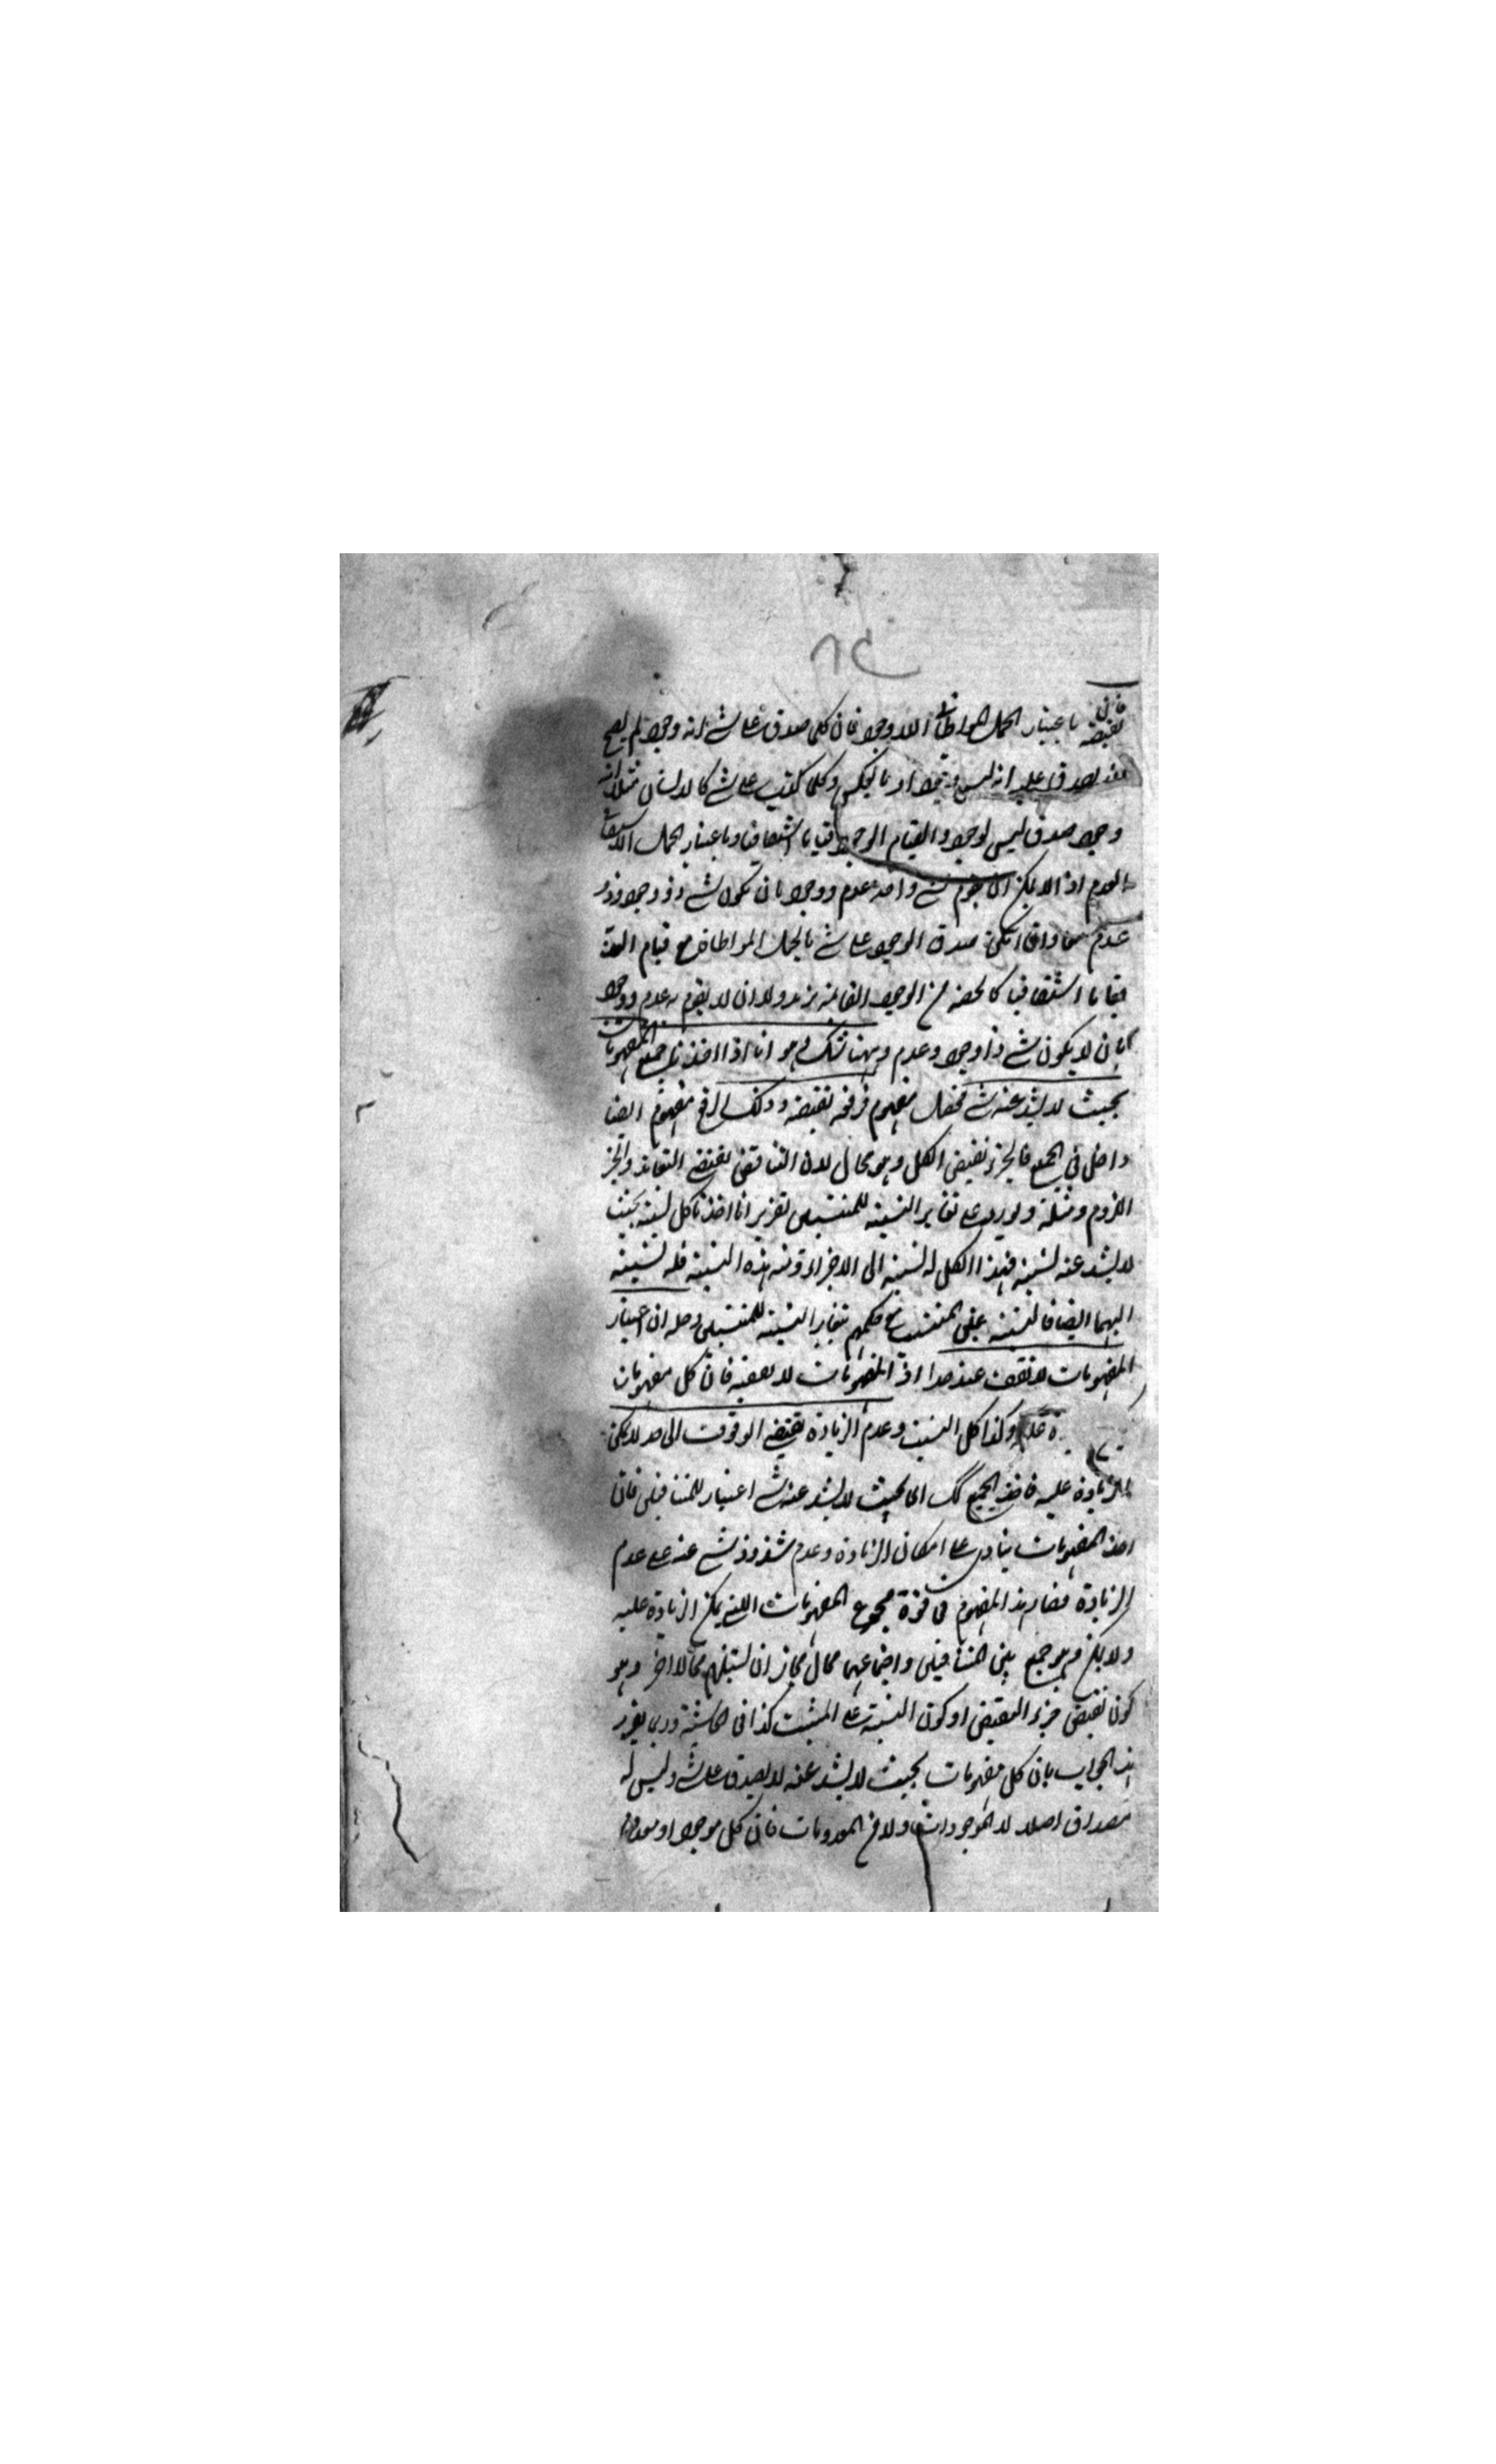 فان نقيضه باعتبار الحمل المواطاة اللاوجود فان كلما صدق على شے انه وجود لم يصح
يصدق عليه انه ليس بوجود او بالعكس وكلما كذب على شے كالانسان مثلا انه
وجود صدق ليس لوجود والقيام الوجود قياما اشتقاقيا وباعتبار الحمل الاشتقاق
العدم اذ لا يمكن ان يقوم بشے واحد عدم ووجود بان يكون شے ذو وجود وذو
عدم معا وان امكن صدق الوجود على شے بالحمل المواطاة مع قيام العدم
قياما اشتقاقيا كالحصة من الوجود القائمة بزيد ولا ان لا يقوم به عدم ووجود
بان لا يكون شے ذا وجود وعدم وههنا شك هو انا اذا اخذنا جميع المفهومات
بحيث لا يشذ عنه شے فحصل مفهوم فرفعه نقيضه وذلك الرفع مفهوم ايضا
داخل في الجميع فالجزء نقيض الكل وهو محال لان التناقض يقتضے التعاند والجزء
اللزوم ومثله ولا يورد على تغاير النسبة للمنتسبين تقريره انا اخذنا كل نسبة بحيث
لا يشذ عنه نسبة فهذا الكل له نسبة الى الاجزاء وتسمى هذه النسبة فله نسبة
اليهما ايضا فالنسبة عين المنتسب مع حكمهم بتغاير النسبة للمنتسبين وحله ان اعتبار
المفهومات لا تقف عند حد اذ المفهومات لا يقف فان كل مفهومات
وكذا كل النسب وعدم الزيادة يقتضے الوقوف الى حد لا يمكن
الزيادة عليه فاخذ الجميع كك اى بحيث لا يشذ عنه شے اعتبار للمتنافيين فان
اخذ المفهومات ينادى على امكان الزيادة وعدم شذوذ شے عنه على عدم
الزيادة فصار هذا المفهوم فى قوة مجموع المفهومات اللتے يمكن الزيادة عليه
ولا يمكن وهو جمع بين المتنافيين واجتماعهما محال فجاز ان يستلزم محالا اخر وهو
كون نقيض جزء النقيض او كون النسبة على المثبت كذا فى الحاشية وربما يقرر
هذا الجواب بان كل مفهومات بحيث لا يشذ عنه لا يصدق على شے وليس له
مصداق اصلا لا الموجودات ولا فى المعدومات فان كل موجود او معدوم